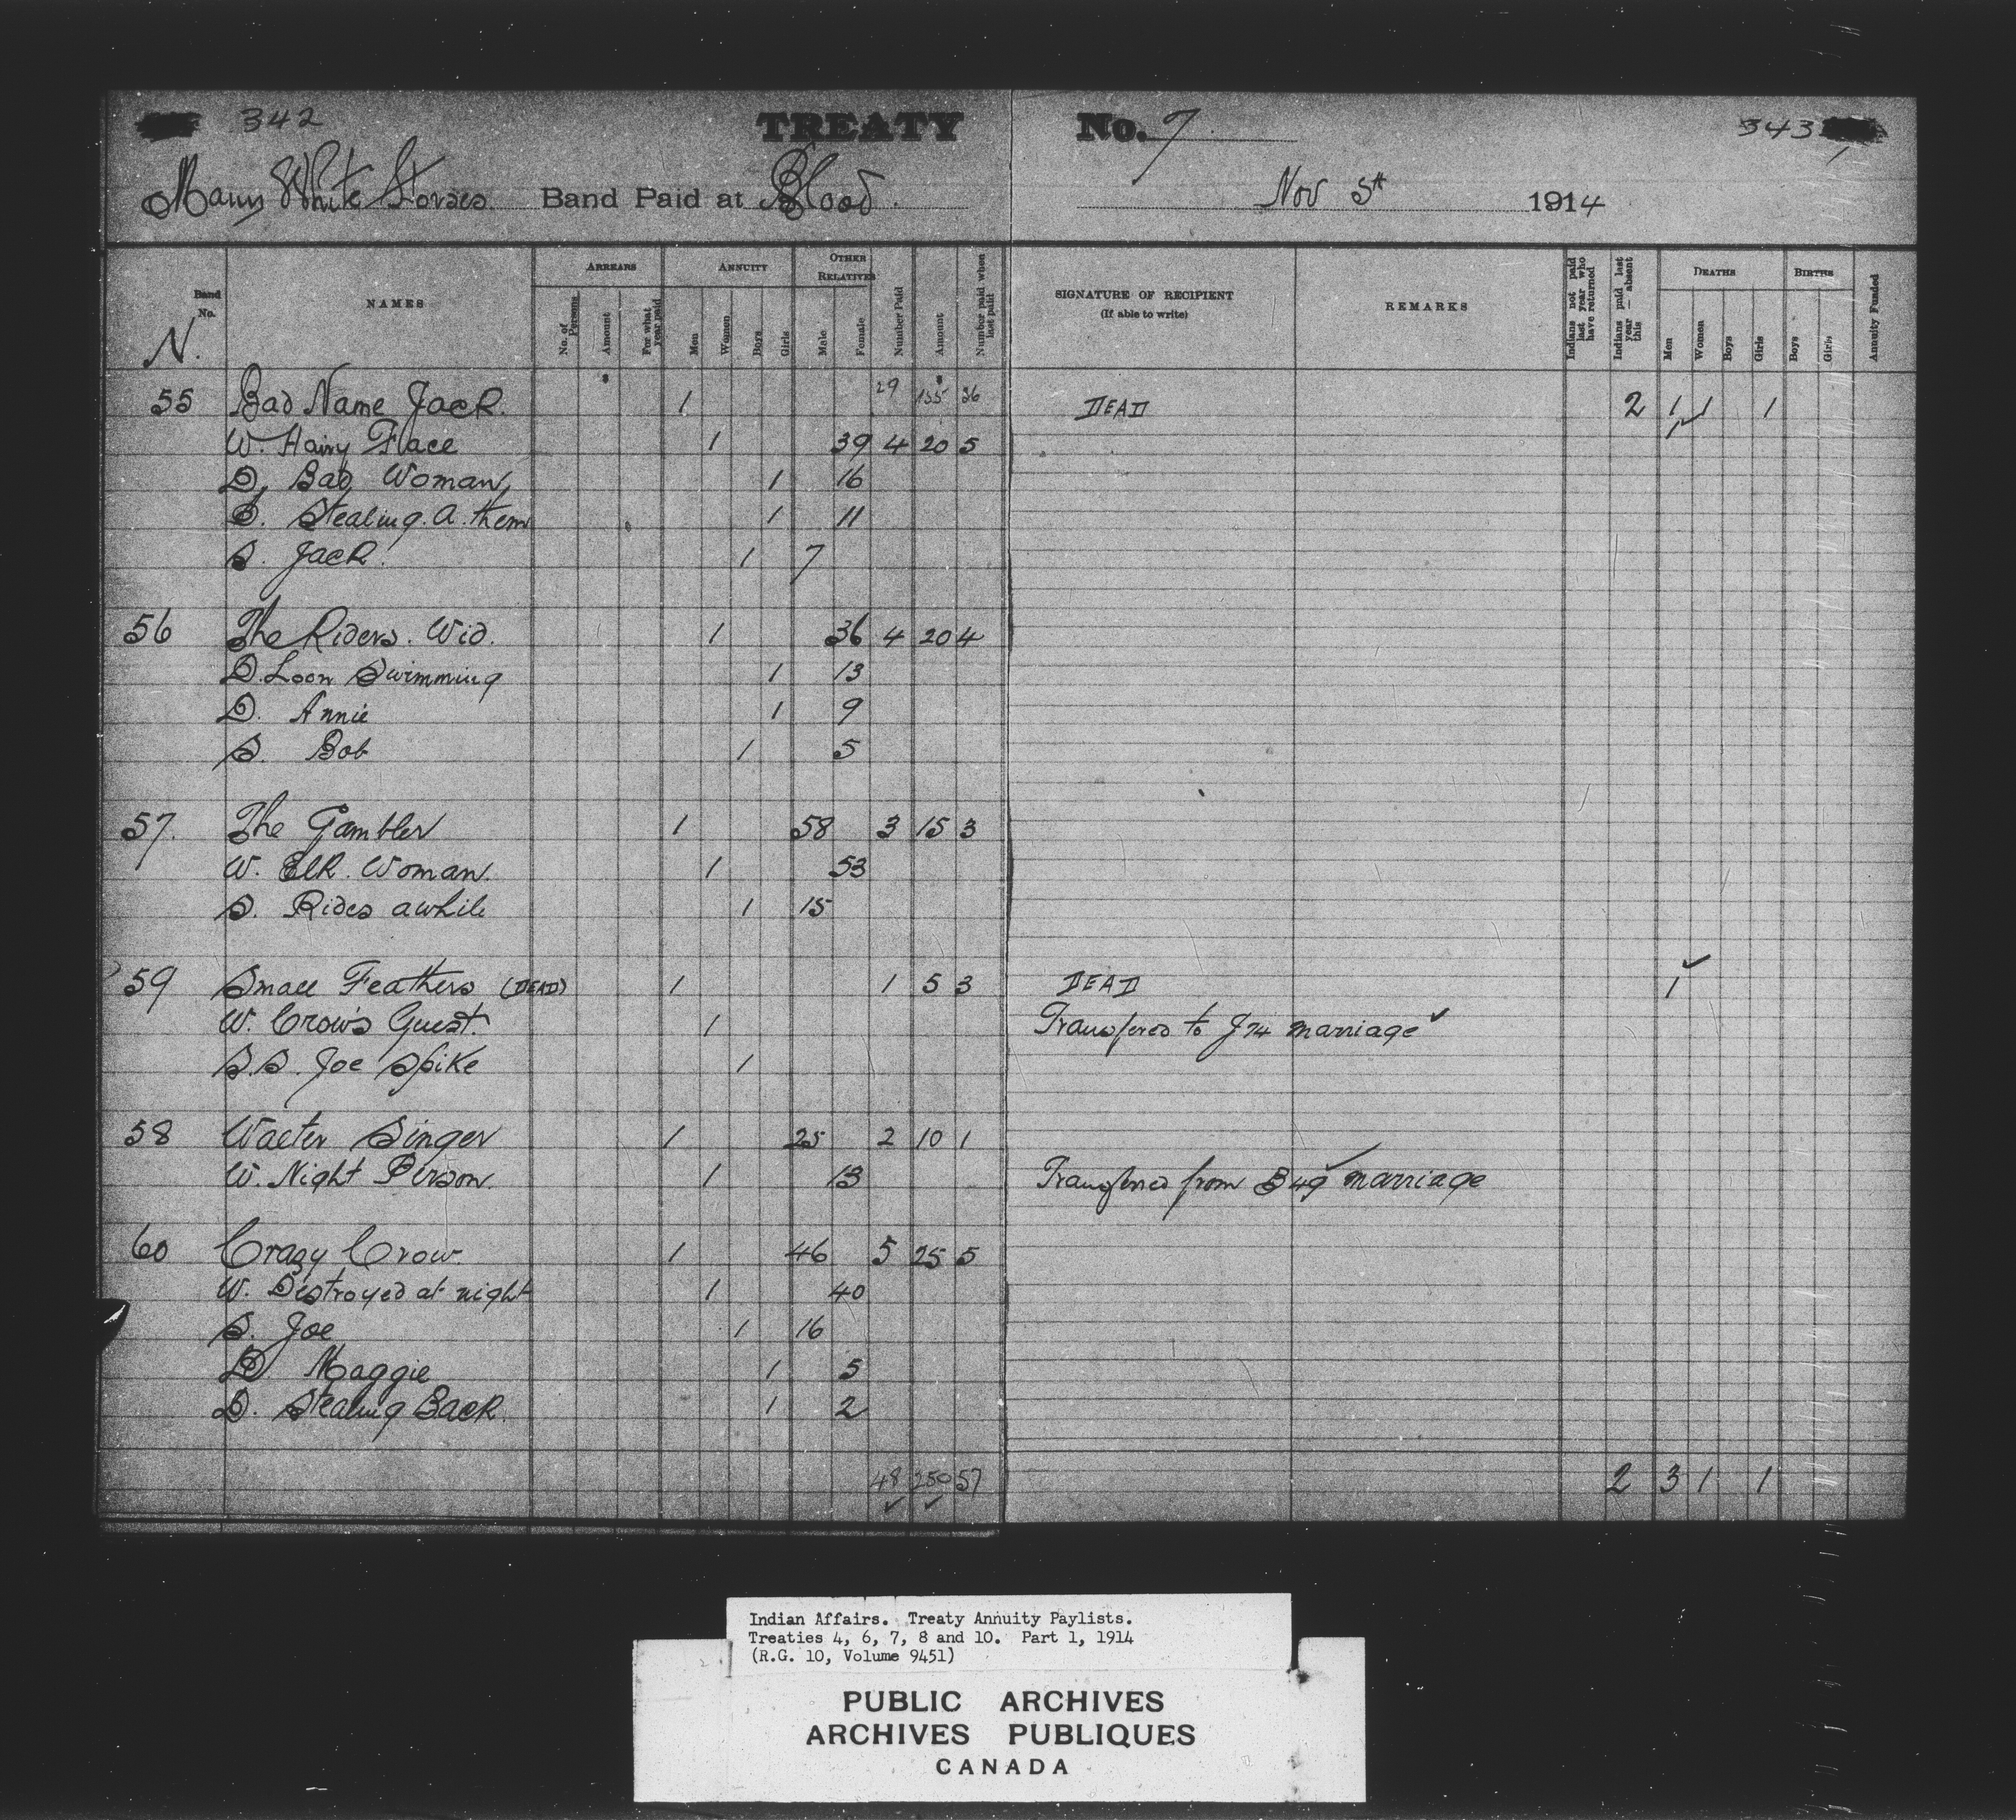 342 TREATY No. 7 343
Many White Horses Band Paid at Blood. Nov 5th 1914
Band No. NAMES ARREARS No. of Persons Amount For what year paid ANNUITY Men Women Boys Girls OTHER RELATIVES Male Female Number Paid Amount Number paid when last paid SIGNATURE OF RECIPIENT (If able to write) REMARKS Indians not paid last year who have returned Indians paid last year — absent this DEATHS Men Women Boys Girls BIRTHS Boys Girls Annuity Funded
N.
29 135 36
55 Bad Name Jack. 1 DEAD 2 1 1 1
W. Hairy Face 1 39 4 20 5 1
D. Bad Woman 1 16
D. Stealing. a. them 1 11
S. Jack. 1 7
56 The Riders. Wid. 1 36 4 20 4
D. Loon Swimming 1 13
D. Annie 1 9
S. Bob 1 5
57. The Gambler 1 58 3 15 3
W. Elk. Woman. 1 53
S. Rides awhile 1 15
59 Small Feathers (DEAD) 1 1 5 3 DEAD 1
W. Crow's Guest. 1 Transfered to J74 marriage
S.S. Joe Spike 1
58 Walter Singer 1 25 2 10 1
W. Night Person. 1 13 Transfered from B49 marriage
60 Crazy Crow. 1 46 5 25 5
W. Destroyed at night 1 40
S. Joe 1 16
D. Maggie 1 5
D. Stealing Back 1 2
48 250 57 2 3 1 1
Indian Affairs. Treaty Annuity Paylists.
Treaties 4, 6, 7, 8 and 10. Part 1, 1914
(R.G. 10, Volume 9451)
PUBLIC ARCHIVES
ARCHIVES PUBLIQUES
CANADA